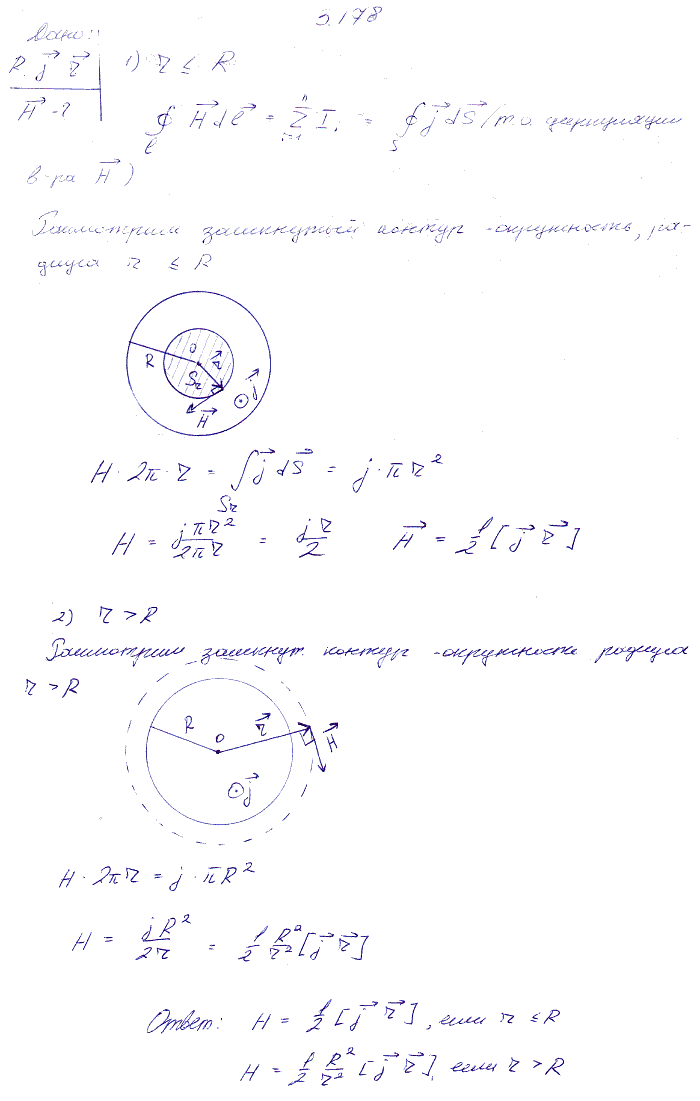 3.178
Дано:
R, j⃗, r⃗
H⃗ - ?
1) r ≤ R
∮_l H⃗ dl⃗ = Σ_{i=1}^{n} I_i = ∮_S j⃗ dS⃗ /т.о. циркуляции
в-ра H⃗ )
Рассмотрим замкнутый контур - окружность, ра-
диуса r ≤ R
R O r⃗ S_r j⃗ H⃗
H · 2π · r = ∫_{S_r} j⃗ dS⃗ = j · π r²
H = jπr²/2πr = jr/2 H⃗ = 1/2 [j⃗ r⃗]
2) r > R
Рассмотрим замкнут. контур - окружность радиуса
r > R
R O r⃗ H⃗ j⃗
H · 2πr = j · πR²
H = jR²/2r = 1/2 R²/r² [j⃗ r⃗]
Ответ: H = 1/2 [j⃗ r⃗], если r ≤ R
H = 1/2 R²/r² [j⃗ r⃗], если r > R